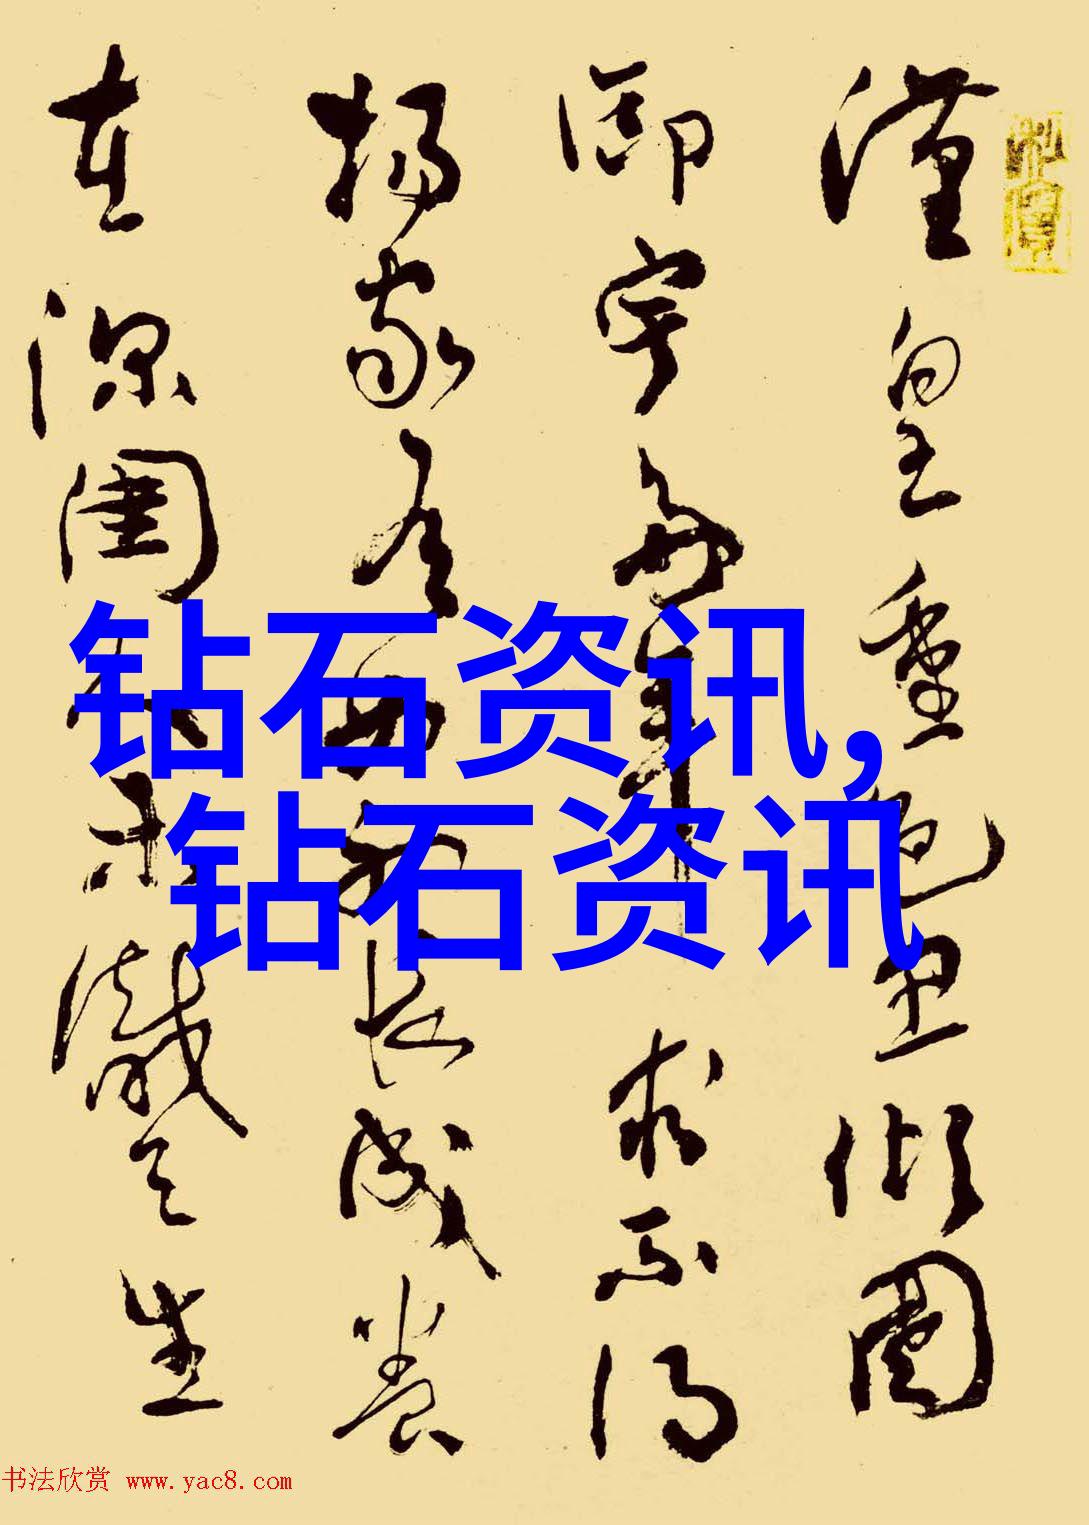 漢皇重色思傾國
御宇多年求不得
楊家有女初長成養
在深閨人未識天生
钻石资讯,
钻石资讯
书法欣赏 www.yac8.com